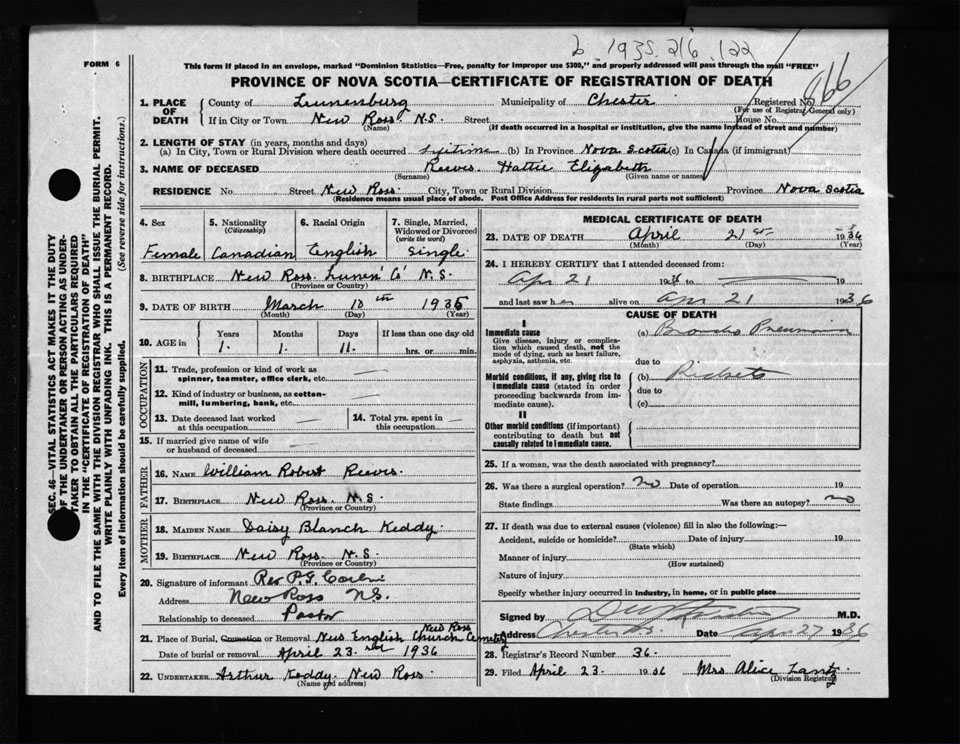 6 1935 216 122
FORM 6
This form if placed in an envelope, marked "Dominion Statistics—Free, penalty for improper use $300," and properly addressed will pass through the mail "FREE"
PROVINCE OF NOVA SCOTIA—CERTIFICATE OF REGISTRATION OF DEATH
1. PLACE OF DEATH County of Lunenburg Municipality of Chester Registered No. 866
(For use of Registrar General only)
If in City or Town New Ross N.S. Street House No.
(Name) (If death occurred in a hospital or institution, give the name instead of street and number)
2. LENGTH OF STAY (in years, months and days)
(a) In City, Town or Rural Division where death occurred Lifetime (b) In Province Nova Scotia (c) In Canada (if immigrant)
3. NAME OF DECEASED Reeves Hattie Elizabeth
(Surname) (Given name or names)
RESIDENCE No. Street New Ross City, Town or Rural Division Province Nova Scotia
(Residence means usual place of abode. Post Office Address for residents in rural parts not sufficient)
4. Sex Female
5. Nationality (Citizenship) Canadian
6. Racial Origin English
7. Single, Married, Widowed or Divorced (write the word) Single
8. BIRTHPLACE New Ross Lunen' Co' N.S.
(Province or Country)
9. DATE OF BIRTH March 10th 1935
(Month) (Day) (Year)
10. AGE in Years 1 Months 1 Days 11 If less than one day old hrs. or min.
OCCUPATION
11. Trade, profession or kind of work as spinner, teamster, office clerk, etc.
12. Kind of industry or business, as cotton-mill, lumbering, bank, etc.
13. Date deceased last worked at this occupation
14. Total yrs. spent in this occupation
15. If married give name of wife or husband of deceased
FATHER
16. NAME William Robert Reeves
17. BIRTHPLACE New Ross N.S.
(Province or Country)
MOTHER
18. MAIDEN NAME Daisy Blanch Keddy
19. BIRTHPLACE New Ross N.S.
(Province or Country)
20. Signature of informant Rev P.G.
Address New Ross N.S.
Relationship to deceased Pastor
21. Place of Burial, Cremation or Removal New English Church Cemetery New Ross
Date of burial or removal April 23 1936
22. UNDERTAKER Arthur Keddy New Ross
(Name and address)
MEDICAL CERTIFICATE OF DEATH
23. DATE OF DEATH April 21st 1936
(Month) (Day) (Year)
24. I HEREBY CERTIFY that I attended deceased from:
Apr 21 1936 to 19
and last saw her alive on Apr 21 1936
CAUSE OF DEATH
I
Immediate cause
Give disease, injury or complication which caused death, not the mode of dying, such as heart failure, asphyxia, asthenia, etc.
(a) Broncho Pneumonia
due to
Morbid conditions, if any, giving rise to immediate cause (stated in order proceeding backwards from immediate cause).
(b) Rickets
due to
(c)
II
Other morbid conditions (if important) contributing to death but not causally related to immediate cause.
25. If a woman, was the death associated with pregnancy?
26. Was there a surgical operation? no Date of operation 19
State findings Was there an autopsy? no
27. If death was due to external causes (violence) fill in also the following:—
Accident, suicide or homicide? Date of injury 19
(State which)
Manner of injury
(How sustained)
Nature of injury
Specify whether injury occurred in industry, in home, or in public place
Signed by M.D.
Address Chester N.S. Date Apr 27 1936
28. Registrar's Record Number 36.
29. Filed April 23 1936 Mrs Alice Lantz
(Division Registrar)
SEC. 46—VITAL STATISTICS ACT MAKES IT THE DUTY
OF THE UNDERTAKER OR PERSON ACTING AS UNDER-
TAKER TO OBTAIN ALL THE PARTICULARS REQUIRED
IN THE "CERTIFICATE OF REGISTRATION OF DEATH"
AND TO FILE THE SAME WITH THE DIVISION REGISTRAR WHO SHALL ISSUE THE BURIAL PERMIT.
WRITE PLAINLY WITH UNFADING INK. THIS IS A PERMANENT RECORD.
Every item of information should be carefully supplied. (See reverse side for instructions.)